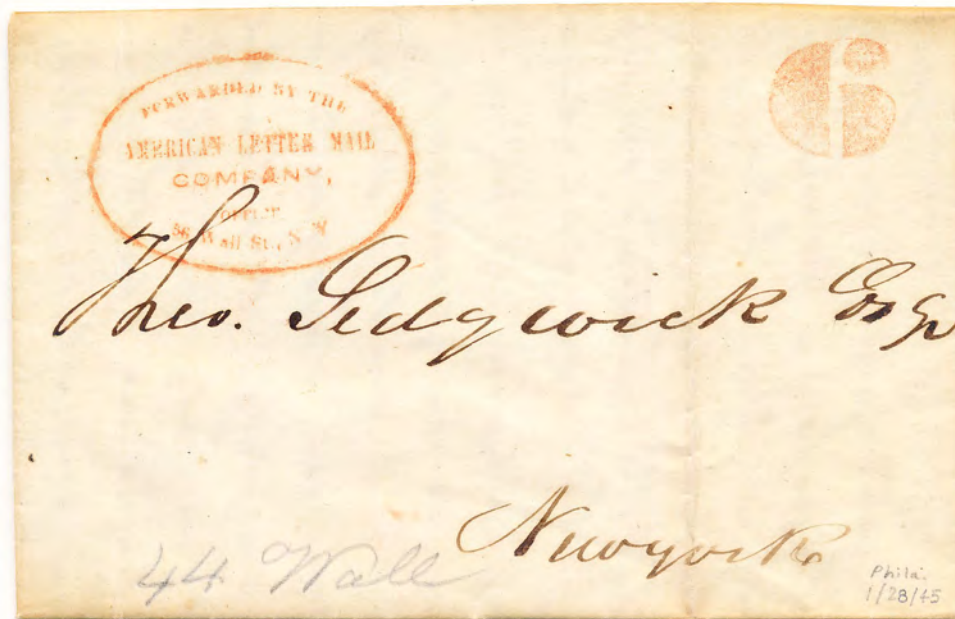 FORWARDED BY THE
AMERICAN LETTER MAIL
COMPANY,
OFFICE
56 Wall St., N.Y
6
Theo. Sedgwick Esq
Newyork
44 Wall
Phila.
1/28/45